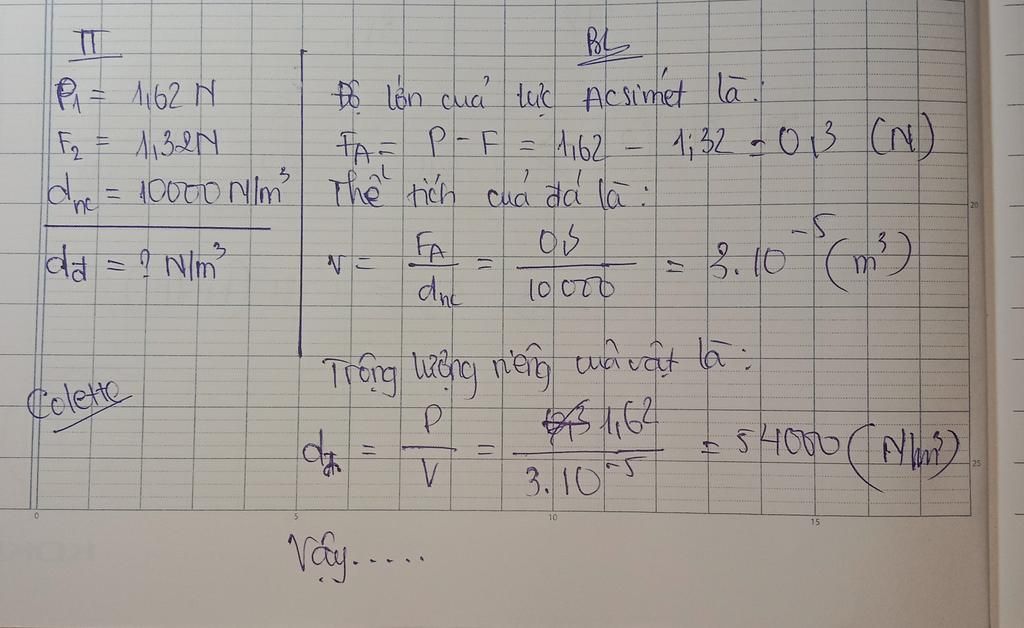 TT
P₁ = 1,62 N
F₂ = 1,32N
dnc = 10000 N/m³
dđ = ? N/m³
Colette
BL
Độ lớn của lực Acsimét là:
FA = P - F = 1,62 - 1,32 = 0,3 (N)
Thể tích của đá là:
V = FA/dnc = 0,3/10000 = 3.10⁻⁵ (m³)
Trọng lượng riêng của vật là:
dđ = P/V = 1,62/3.10⁻⁵ = 54000 (N/m³)
Vậy.....
0 5 10 15
20
25